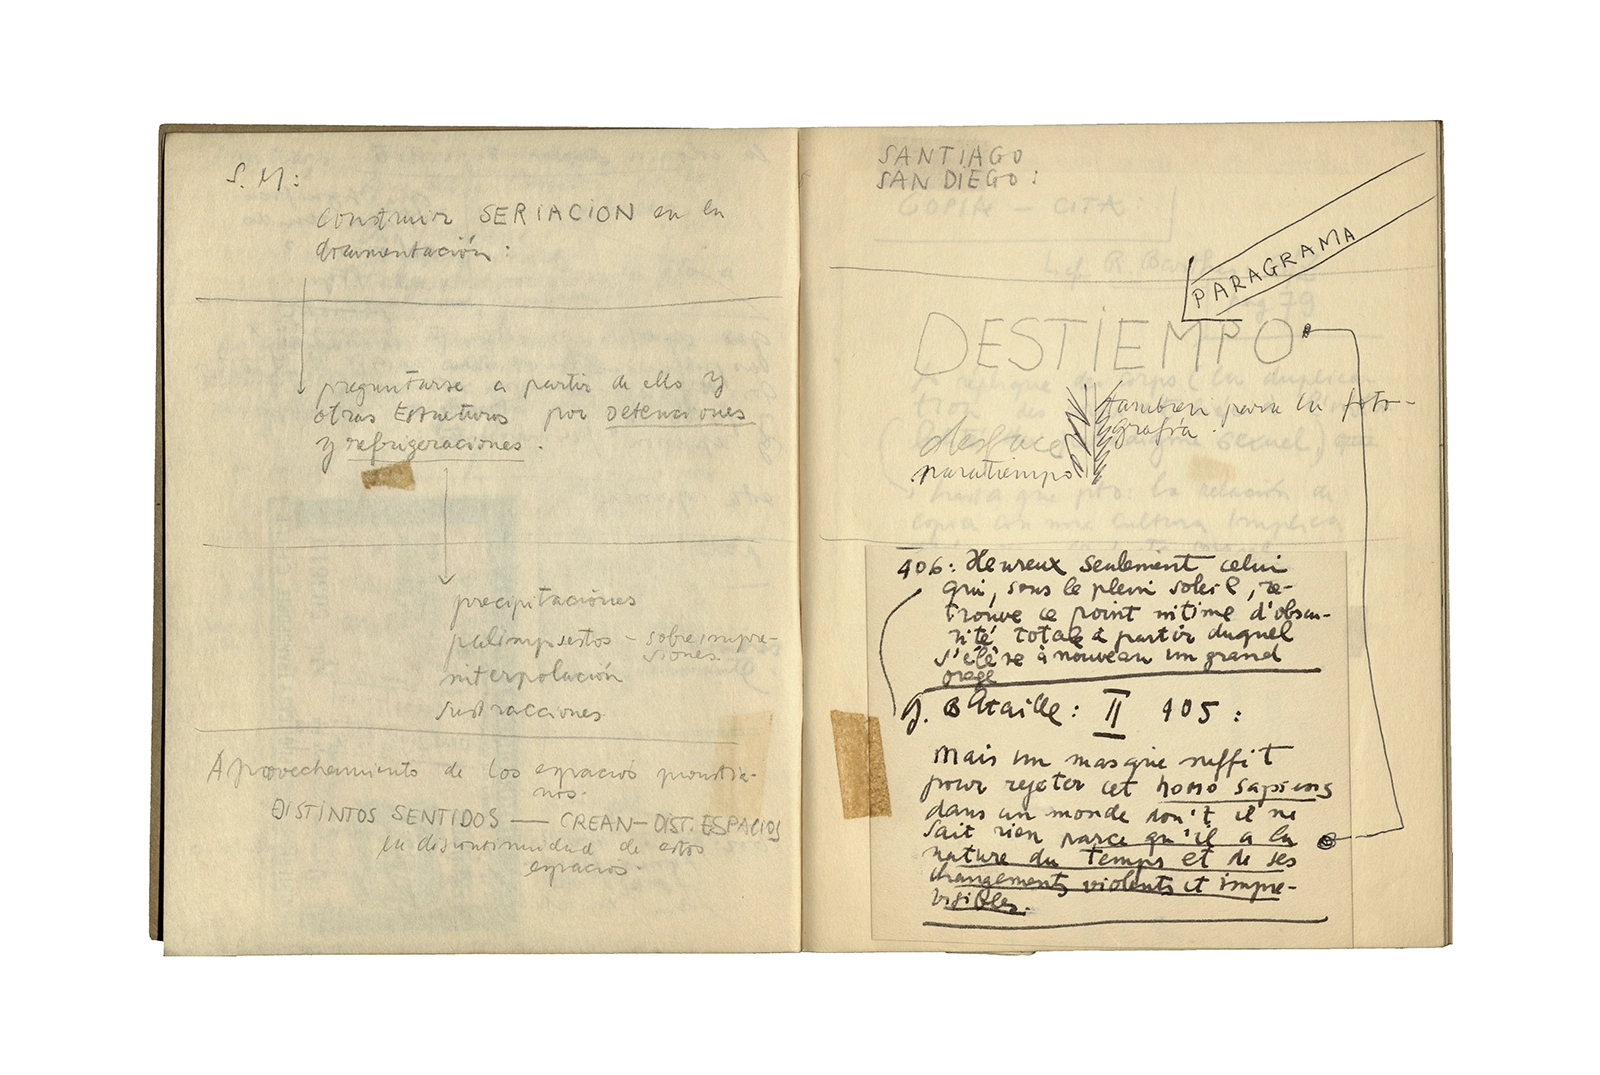 S. M:
Construir SERIACION en la
documentación:
preguntarse a partir de ello y
otras Estructuras por Detenciones
y refrigeraciones.
precipitaciones
palimpsestos - sobreimpre-
siones
interpolación
sustracciones
Aprovechamiento de los espacios proustia-
nos.
DISTINTOS SENTIDOS — CREAN — DIST. ESPACIOS
la discontinuidad de estos
espacios.
SANTIAGO
SAN DIEGO:
COPIA - CITA
PARAGRAMA
DESTIEMPO
también para la foto-
grafía.
desface
paratiempo
406: Heureux seulement celui
qui, sous le plein soleil, re-
trouve ce point intime d'obscu-
rité totale à partir duquel
s'élève à nouveau un grand
orage
G. Bataille: II 405:
Mais un masque suffit
pour rejeter cet homo sapiens
dans un monde don't il ne
sait rien parce qu'il a la
nature du temps et de ses
changements violents et impre-
visibles.